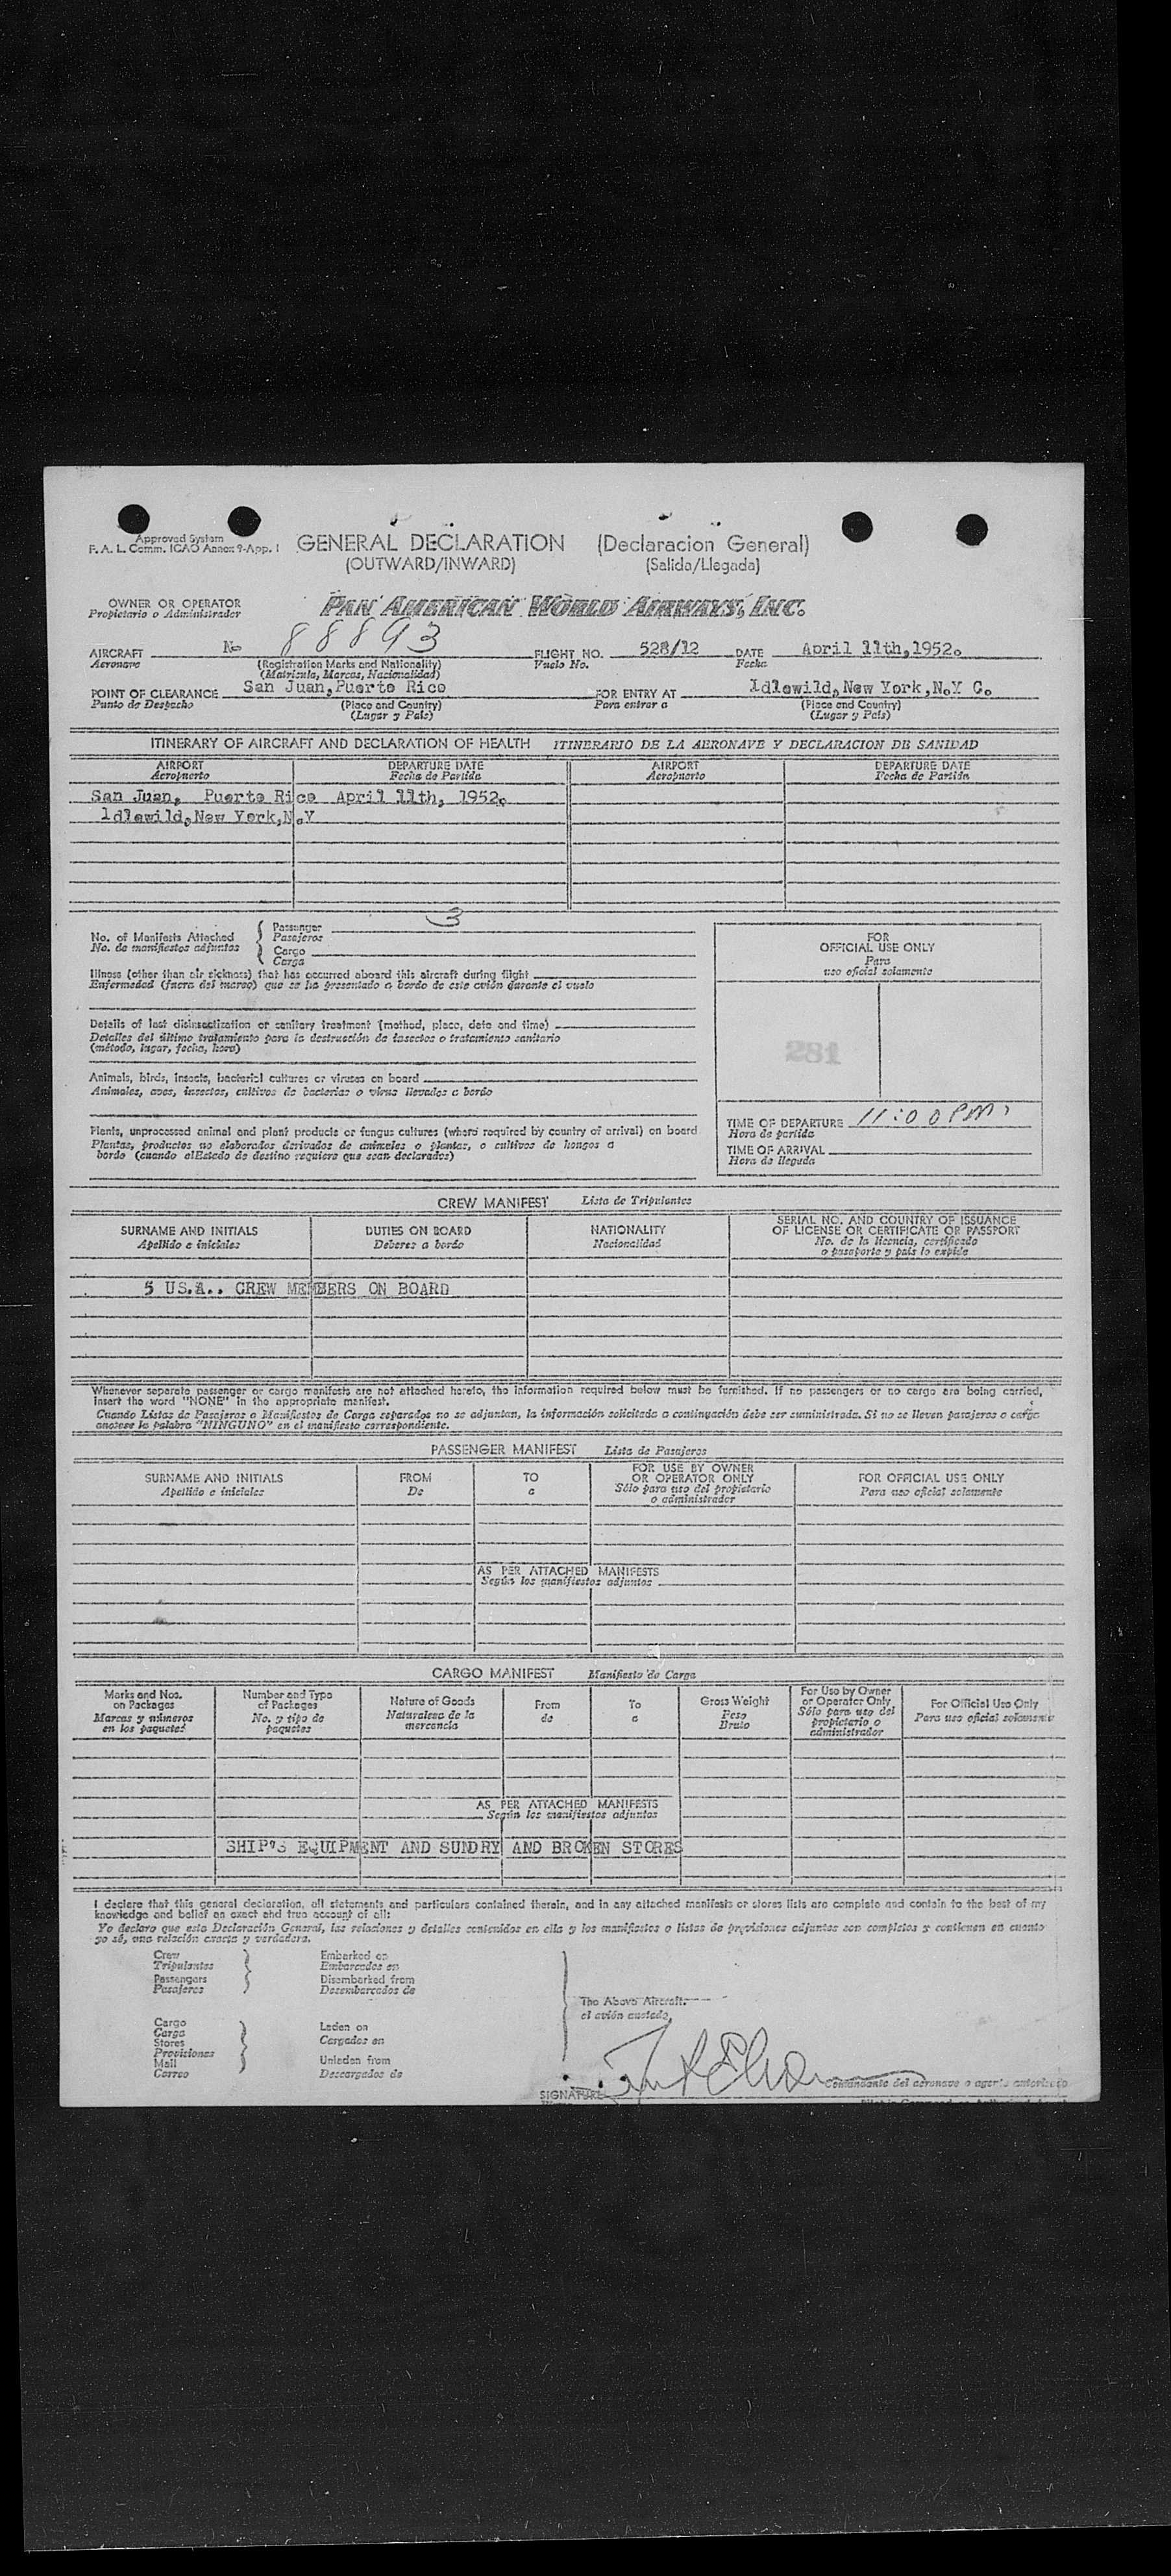 Approved System
F. A. L. Comm. ICAO Annex 9-App. 1
GENERAL DECLARATION (Declaracion General)
(OUTWARD/INWARD) (Salida/Llegada)
OWNER OR OPERATOR
Propietario o Administrador
PAN AMERICAN WORLD AIRWAYS, INC.
AIRCRAFT No 88893 FLIGHT NO. 528/12 DATE April 11th,1952.
Aeronave (Registration Marks and Nationality) Vuelo No. Fecha
(Matricula, Marcas, Nacionalidad)
POINT OF CLEARANCE San Juan,Puerto Rico FOR ENTRY AT Idlewild,New York,N.Y C.
Punto de Despacho (Place and Country) Para entrar a (Place and Country)
(Lugar y País) (Lugar y País)
ITINERARY OF AIRCRAFT AND DECLARATION OF HEALTH ITINERARIO DE LA AERONAVE Y DECLARACION DE SANIDAD
AIRPORT DEPARTURE DATE AIRPORT DEPARTURE DATE
Aeropuerto Fecha de Partida Aeropuerto Fecha de Partida
San Juan, Puerto Rico April 11th, 1952.
Idlewild,New York,N.Y
No. of Manifests Attached
No. de manifiestos adjuntos
Passenger 3
Pasajeros
Cargo
Carga
Illness (other than air sickness) that has occurred aboard this aircraft during flight
Enfermedad (fuera del mareo) que se ha presentado a bordo de este avión durante el vuelo
Details of last disinsectization or sanitary treatment (method, place, date and time)
Detalles del último tratamiento para la destrucción de insectos o tratamiento sanitario
(método, lugar, fecha, hora)
Animals, birds, insects, bacterial cultures or viruses on board
Animales, aves, insectos, cultivos de bacterias o virus llevados a bordo
Plants, unprocessed animal and plant products or fungus cultures (where required by country of arrival) on board
Plantas, productos no elaborados derivados de animales o plantas, o cultivos de hongos a
bordo (cuando elEstado de destino requiere que sean declarados)
FOR
OFFICIAL USE ONLY
Para
uso oficial solamente
281
TIME OF DEPARTURE 11:00 PM
Hora de partida
TIME OF ARRIVAL
Hora de llegada
CREW MANIFEST Lista de Tripulantes
SURNAME AND INITIALS DUTIES ON BOARD NATIONALITY SERIAL NO. AND COUNTRY OF ISSUANCE
Apellido e iniciales Deberes a bordo Nacionalidad OF LICENSE OR CERTIFICATE OR PASSPORT
No. de la licencia, certificado
o pasaporte y país lo expide
5 US.A.. CREW MEMBERS ON BOARD
Whenever separate passenger or cargo manifests are not attached hereto, the information required below must be furnished. If no passengers or no cargo are being carried,
insert the word "NONE" in the appropriate manifest.
Cuando Listas de Pasajeros o Manifiestos de Carga separados no se adjuntan, la información solicitada a continuación debe ser suministrada. Si no se lleven pasajeros o carga
anotese la palabra "NINGUNO" en el manifiesto correspondiente.
PASSENGER MANIFEST Lista de Pasajeros
SURNAME AND INITIALS FROM TO FOR USE BY OWNER OR OPERATOR ONLY FOR OFFICIAL USE ONLY
Apellido e iniciales De a Sólo para uso del propietario o administrador Para uso oficial solamente
AS PER ATTACHED MANIFESTS
Según los manifiestos adjuntos
CARGO MANIFEST Manifiesto de Carga
Marks and Nos. on Packages Number and Type of Packages Nature of Goods From To Gross Weight For Use by Owner or Operator Only For Official Use Only
Marcas y números en los paquetes No. y tipo de paquetes Naturaleza de la mercancía de a Peso Bruto Sólo para uso del propietario o administrador Para uso oficial solamente
AS PER ATTACHED MANIFESTS
Según los manifiestos adjuntos
SHIP'S EQUIPMENT AND SUNDRY AND BROKEN STORES
I declare that this general declaration, all statements and particulars contained therein, and in any attached manifests or stores lists are complete and contain to the best of my
knowledge and belief an exact and true account of all:
Yo declaro que esta Declaración General, las relaciones y detalles contenidos en ella y los manifiestos o listas de provisiones adjuntos son completos y contienen en cuanto
yo sé, una relación exacta y verdadera.
Crew Embarked on
Tripulantes Embarcados en
Passengers Disembarked from
Pasajeros Desembarcados de
The Above Aircraft.
Cargo
Carga Laden on
Stores Cargados en
Provisiones
Mail Unladen from
Correo Descargados de
SIGNATURE
Comandante del aeronave o agente autorizado